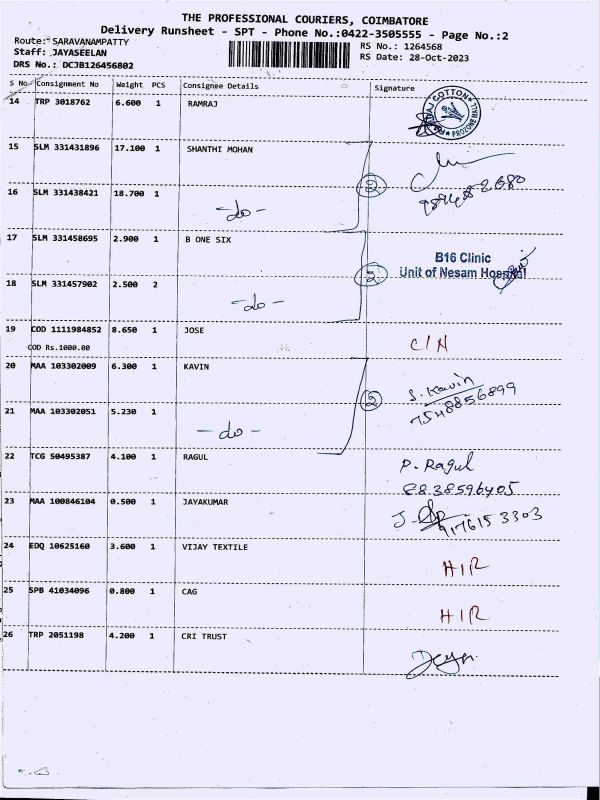 THE PROFESSIONAL COURIERS, COIMBATORE
Delivery Runsheet - SPT - Phone No.:0422-3505555 - Page No.:2
Route: SARAVANAMPATTY
Staff: JAYASEELAN
DRS No.: DCJB126456802
RS No.: 1264568
RS Date: 28-Oct-2023
S No Consignment No Weight PCS Consignee Details Signature
14 TRP 3018762 6.600 1 RAMRAJ
COTTON
PROZONE
15 SLM 331431896 17.100 1 SHANTHI MOHAN
2
16 SLM 331438421 18.700 1 -do-
17 SLM 331458695 2.900 1 B ONE SIX
B16 Clinic
2 Unit of Nesam Hospital
18 SLM 331457902 2.500 2 -do-
19 COD 1111984852 8.650 1 JOSE C/N
COD Rs.1000.00
20 MAA 103302009 6.300 1 KAVIN S. Kavin
2 7548856899
21 MAA 103302051 5.230 1 -do-
22 TCG 50495387 4.100 1 RAGUL P. Ragul
8838596405
23 MAA 100846104 0.500 1 JAYAKUMAR J.
24 EDQ 10625160 3.600 1 VIJAY TEXTILE HIR
25 SPB 41034096 0.800 1 CAG HIR
26 TRP 2051198 4.200 1 CRI TRUST